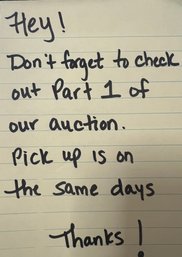 Hey!
Don't forget to check
out Part 1 of
our auction.
Pick up is on
the same days
Thanks!